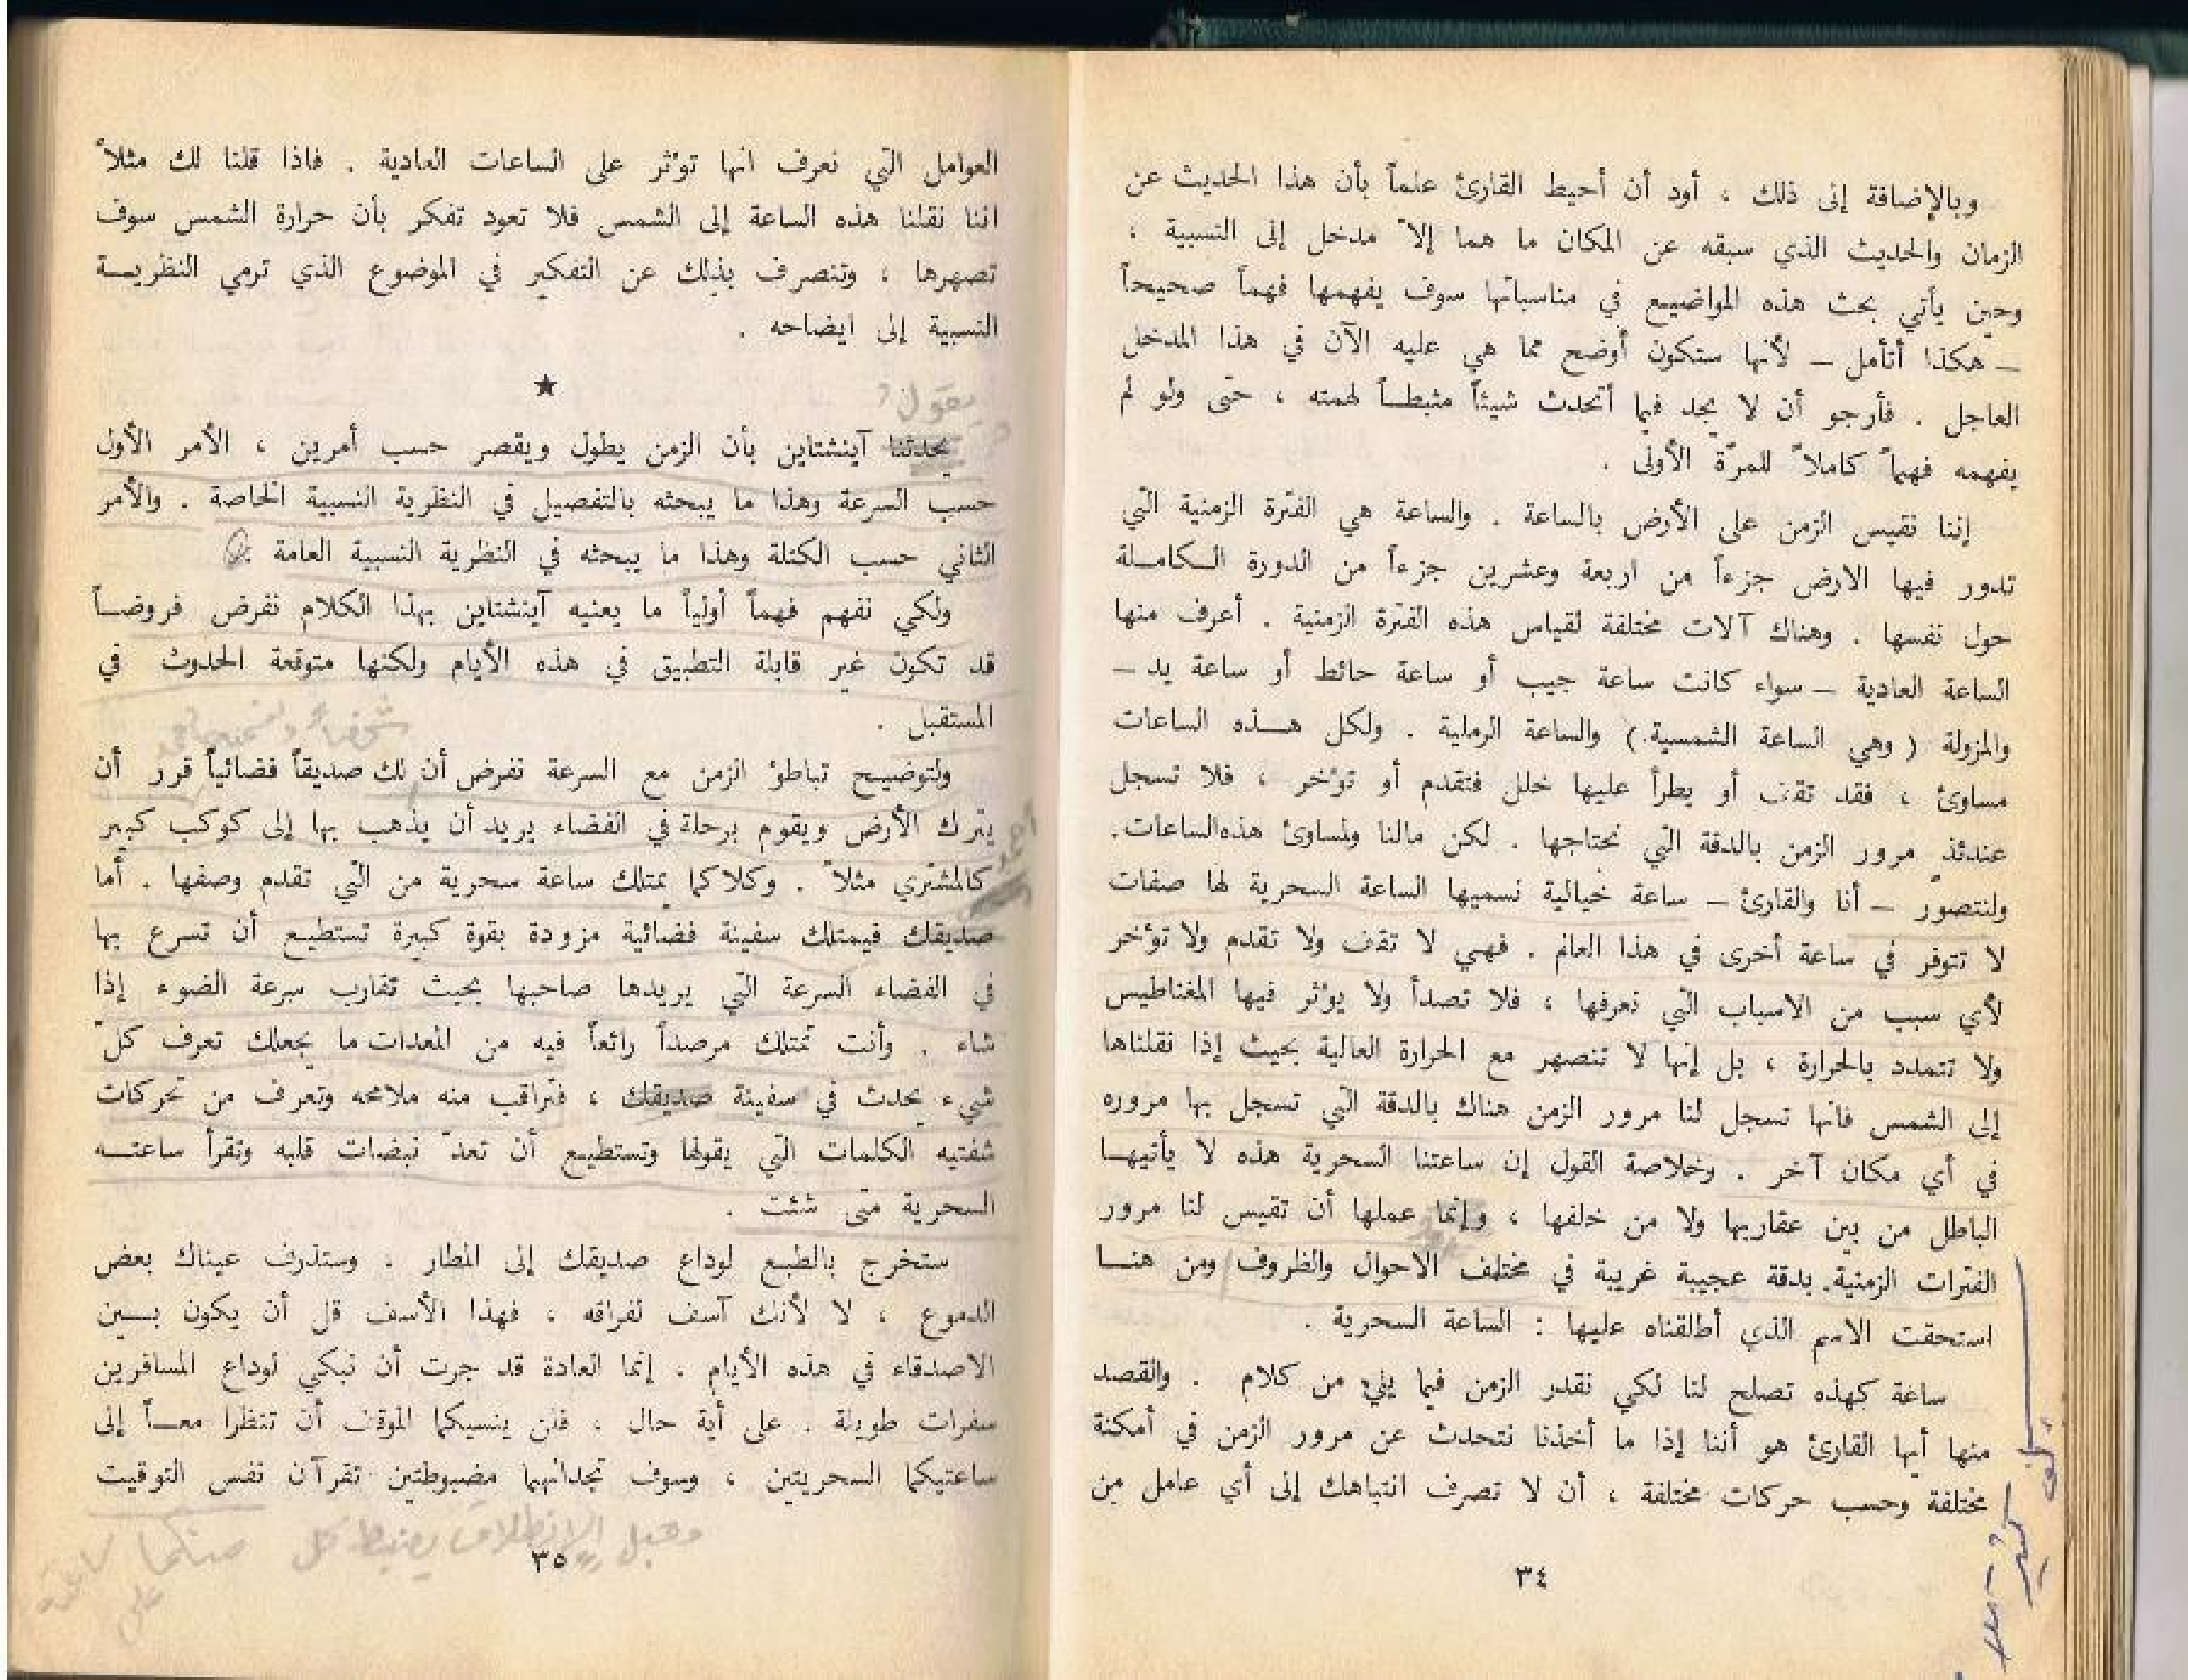 وبالإضافة إلى ذلك ، أود أن أحيط القارئ علماً بأن هذا الحديث عن
الزمان والحديث الذي سبقه عن المكان ما هما إلاّ مدخل إلى النسبية ،
وحين يأتي بحث هذه المواضيع في مناسباتها سوف يفهمها فهماً صحيحاً
– هكذا أتأمل – لأنها ستكون أوضح مما هي عليه الآن في هذا المدخل
العاجل . فأرجو أن لا يجد فيما أتحدث شيئاً مثبطاً لهمته ، حتى ولو لم
يفهمه فهماً كاملاً للمرّة الأولى .
إننا نقيس الزمن على الأرض بالساعة . والساعة هي الفترة الزمنية التي
تدور فيها الارض جزءاً من اربعة وعشرين جزءاً من الدورة الكاملة
حول نفسها . وهناك آلات مختلفة لقياس هذه الفترة الزمنية . أعرف منها
الساعة العادية – سواء كانت ساعة جيب أو ساعة حائط أو ساعة يد –
والمزولة ( وهي الساعة الشمسية ) والساعة الرملية . ولكل هذه الساعات
مساوئ ، فقد تقف أو يطرأ عليها خلل فتقدم أو تؤخر ، فلا تسجل
عندئذ مرور الزمن بالدقة التي نحتاجها . لكن مالنا ولمساوئ هذه الساعات.
ولنتصوّر – أنا والقارئ – ساعة خيالية نسميها الساعة السحرية لها صفات
لا تتوفر في ساعة أخرى في هذا العالم . فهي لا تقف ولا تقدم ولا تؤخر
لأي سبب من الاسباب التي نعرفها ، فلا تصدأ ولا يؤثر فيها المغناطيس
ولا تتمدد بالحرارة ، بل إنها لا تنصهر مع الحرارة العالية بحيث إذا نقلناها
إلى الشمس فانها تسجل لنا مرور الزمن هناك بالدقة التي تسجل بها مروره
في أي مكان آخر . وخلاصة القول إن ساعتنا السحرية هذه لا يأتيها
الباطل من بين عقاربها ولا من خلفها ، وإنما عملها أن تقيس لنا مرور
الفترات الزمنية. بدقة عجيبة غريبة في مختلف الاحوال والظروف ومن هنا
استحقت الاسم الذي أطلقناه عليها : الساعة السحرية .
ساعة كهذه تصلح لنا لكي نقدر الزمن فيما يلي من كلام . والقصد
منها أيها القارئ هو أننا إذا ما أخذنا نتحدث عن مرور الزمن في أمكنة
مختلفة وحسب حركات مختلفة ، أن لا تصرف انتباهك إلى أي عامل من
٣٤
العوامل التي نعرف انها تؤثر على الساعات العادية . فاذا قلنا لك مثلاً
اننا نقلنا هذه الساعة إلى الشمس فلا تعود تفكر بأن حرارة الشمس سوف
تصهرها ، وتنصرف بذلك عن التفكير في الموضوع الذي ترمي النظرية
النسبية إلى ايضاحه .
★
يقول
يحدثنا آينشتاين بأن الزمن يطول ويقصر حسب أمرين ، الأمر الأول
حسب السرعة وهذا ما يبحثه بالتفصيل في النظرية النسبية الخاصة . والأمر
الثاني حسب الكتلة وهذا ما يبحثه في النظرية النسبية العامة .
ولكي نفهم فهماً أولياً ما يعنيه آينشتاين بهذا الكلام نفرض فروضاً
قد تكون غير قابلة التطبيق في هذه الأيام ولكنها متوقعة الحدوث في
المستقبل .
ولتوضيح تباطؤ الزمن مع السرعة نفرض أن لك صديقاً فضائياً قرر أن
يترك الأرض ويقوم برحلة في الفضاء يريد أن يذهب بها إلى كوكب كبير
كالمشتري مثلاً . وكلاكما يمتلك ساعة سحرية من التي تقدم وصفها . أما
صديقك فيمتلك سفينة فضائية مزودة بقوة كبيرة تستطيع أن تسرع بها
في الفضاء السرعة التي يريدها صاحبها بحيث تقارب سرعة الضوء إذا
شاء . وأنت تمتلك مرصداً رائعاً فيه من المعدات ما يجعلك تعرف كلّ
شيء يحدث في سفينة صديقك ، فتراقب منه ملامحه وتعرف من تحركات
شفتيه الكلمات التي يقولها وتستطيع أن تعدّ نبضات قلبه وتقرأ ساعته
السحرية متى شئت .
ستخرج بالطبع لوداع صديقك إلى المطار . وستذرف عيناك بعض
الدموع ، لا لأنك آسف لفراقه ، فهذا الأسف قل أن يكون بين
الاصدقاء في هذه الأيام . إنما العادة قد جرت أن نبكي لوداع المسافرين
سفرات طويلة . على أية حال ، فلن ينسيكما الموقف أن تنظرا معاً إلى
ساعتيكما السحريتين ، وسوف تجدانهما مضبوطتين تقرآن نفس التوقيت
وقبل الإنطلاق يضبط كل
٣٥